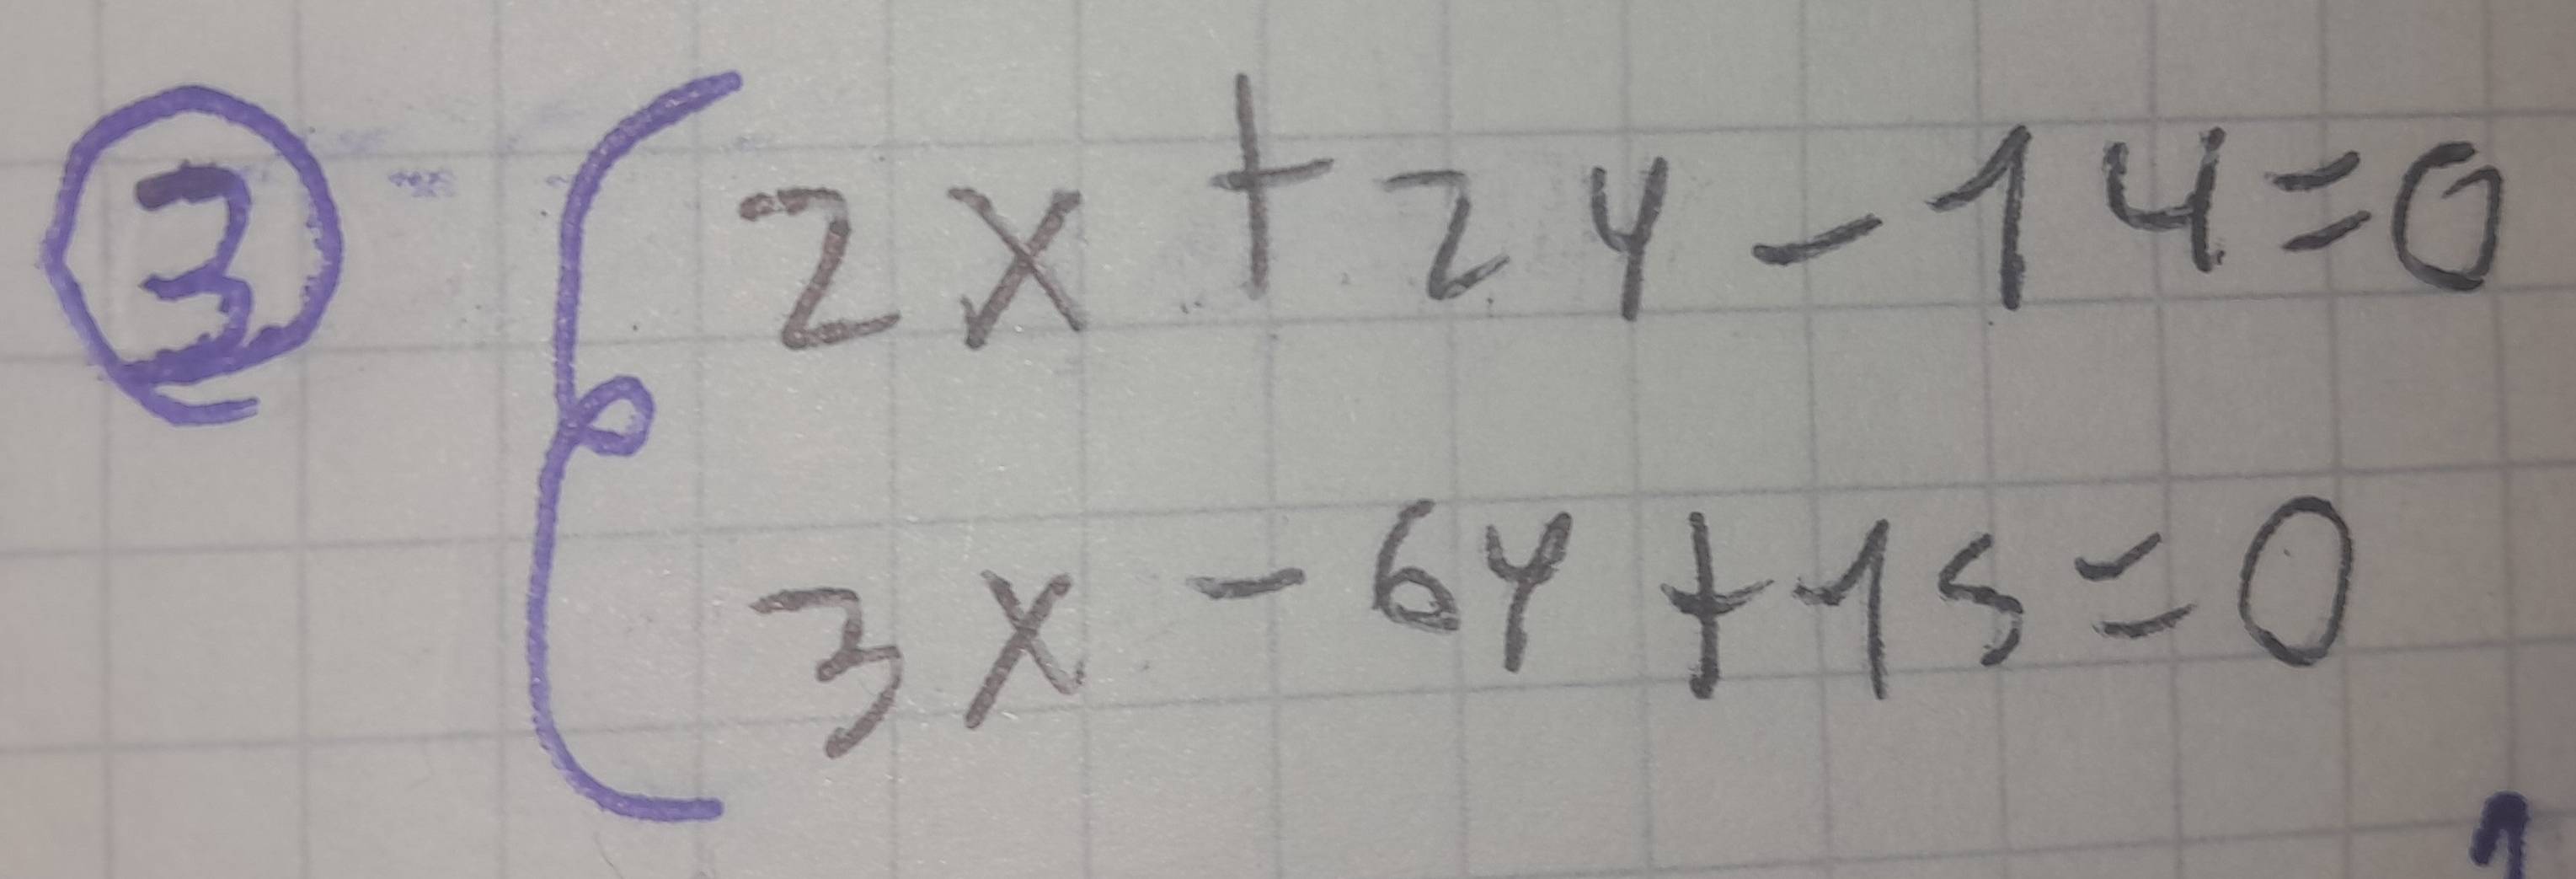 3 2x + 2y - 14 = 0
3x - 6y + 15 = 0